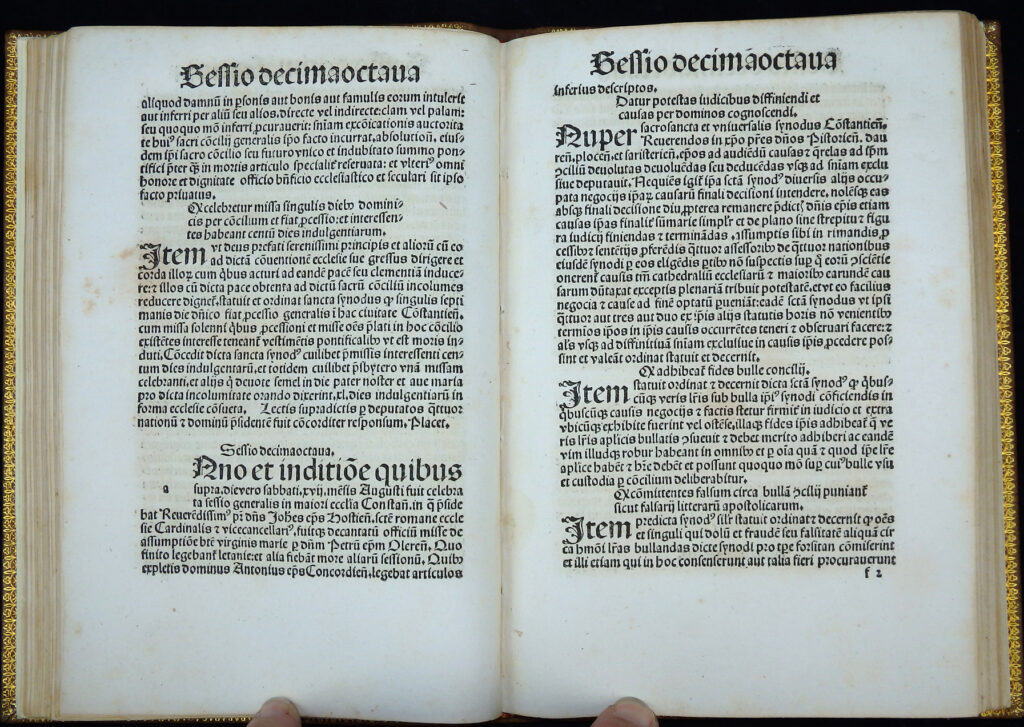 Sessio decimaoctaua
aliquod damnũ in ꝑsonis aut bonis aut famulis eorum intulerit
aut inferri per aliũ seu alios, directe vel indirecte: clam vel palam:
seu quoquo mõ inferri ꝓcurauerit: sñiam excõicationis auctorita
te huiꝰ sacri cõcilij generalis ipso facto incurrat, absolutionẽ, eius-
dem ipsi sacro cõcilio seu futuro vnico et indubitato summo pon-
tifici p̃ter q̃ in mortis articulo specialiẽ reseruata: et vlteriꝰ omni
honore et dignitate officio bñficio ecclesiastico et seculari sit ipso
facto priuatus.
Q celebretur missa singulis diebꝰ domini-
cis per cõcilium et fiat ꝓcessio: et interessen-
tes habeant centũ dies indulgentiarum.
Item vt deus prefati serenissimi principis et aliorũ cũ eo
ad dictã cõuentionẽ ecclesie sue gressus dirigere et
corda illoꝝ cum q̃bus acturi ad eandẽ pacẽ seu clementiã induce-
re: ⁊ illos cũ dicta pace obtenta ad dictũ sacrũ cõcilium incolumes
reducere dignet̃, statuit et ordinat sancta synodus ꝙ singulis septi
manis die dñico fiat ꝓcessio generalis ĩ hac ciuitate Cõstantieñ.
cum missa solenni q̃bus ꝓcessioni et misse oẽs p̃lati in hoc cõcilio
existẽtes interesse teneant̃ vestimẽtis pontificalibꝰ vt est moris in-
duti. Cõcedit dicta sancta synodꝰ cuilibet p̃missis interessenti cen-
tum dies indulgentiarũ, et totidem cuilibet p̃sbytero vnã missam
celebranti, et alijs q̃ deuote semel in die pater noster et aue maria
pro dicta incolumitate orando dixerint, xl. dies indulgentiarũ in
forma ecclesie cõsueta. Lectis supradictis ꝑ deputatos q̃ttuor
nationũ et dominũ p̃sidentẽ fuit cõcorditer responsum, Placet.
Sessio decimaoctaua.
Anno et inditiõe quibus
a supra, die vero sabbati, xvij, mẽsis Augusti fuit celebra
ta sessio generalis in maiori ecclia Constañ. in q̃ p̃side
bat Reuerẽdissimꝰ pr̃ dñs Johẽs ep̃s Hostieñ. sctẽ romane eccle
sie Cardinalis ⁊ vicecancellariꝰ, fuitq̃ decantatũ officiũ misse de
assumptiõe btẽ virginis marie ꝑ dñm Petrũ ep̃m Oloreñ. Quo
finito legebant̃ letanie: et alia fiebãt more aliarũ sessionũ. Quibꝰ
expletis dominus Antonius ep̃s Concordieñ, legebat articulos
Sessio decimaoctaua
inferius descriptos.
Datur potestas iudicibus diffiniendi et
causas per dominos cognoscendi.
Nuper sacrosancta et vniuersalis synodus Cõstantieñ.
Reuerendos in xp̃o pr̃es dños Pistorieñ. dau
reñ, ploceñ, et saristerieñ, ep̃os ad audiẽdũ causas ⁊ q̃relas ad ip̃m
ꝯciliũ deuolutas deuoluẽdas seu deducẽdas vsq̃ ad sñiam exclu
siue deputauit. Nequiẽs igit̃ ip̃a sctã synodꝰ diuersis alijs occu-
pata negocijs ip̃aꝝ causarũ finali decisioni intendere, nolẽsq̃ eas
absq̃ finali decisione diu, ꝓpterea remanere p̃dictꝭ dñis ep̃is etiam
causas ip̃as finaliẽ sũmarie simplr̃ et de plano sine strepitu ⁊ figu
ra iudicij finiendas ⁊ terminãdas, assumptis sibi in rimandis, ꝓ
cessibꝰ ⁊ sentẽtijs, ꝓferẽdis q̃ttuor assessoribꝰ de q̃ttuor nationibus
eiusdẽ synodi ꝑ eos eligẽdis ꝑtibꝰ nõ suspectis sup̃ q̃ eorũ ꝯsciẽtie
onerent̃ causis tm̃ cathedraliũ ecclesiarũ ⁊ maioribꝰ earundẽ cau
sarum dũtaxat exceptis plenariã tribuit potestatẽ, et vt eo facilius
negocia ⁊ cause ad finẽ optatũ ꝑueniãt: eadẽ sctã synodus vt ipsi
q̃ttuor aut tres aut duo ex ip̃is alijs statutis horis nõ venientibꝰ
termĩos ip̃os in ip̃is causis occurrẽtes teneri ⁊ obseruari facere: ⁊
als̃ vsq̃ ad diffinitiuã sñiam exclusiue in causis ip̃is, ꝓcedere pos-
sint et valeãt ordinat statuit et decernit.
Q adhibeat̃ fides bulle concilij.
Item statuit ordinat ⁊ decernit dicta sctã synodꝰ ꝙ q̃bus-
cũq̃ veris lr̃is sub bulla ip̃iꝰ synodi cõficiendis in
q̃buscũq̃ causis negocijs ⁊ factis stetur firmiẽ in iudicio et extra
vbicũq̃ exhibite fuerint vel ostẽse, illaꝝq̃ fides ip̃is adhibeat̃ q̃ ve
ris lr̃is aplicis bullatis ꝯsueuit ⁊ debet merito adhiberi ac eandẽ
vim illudq̃ robur habeant in omnibꝰ et ꝑ oĩa quã ⁊ quod ip̃e lr̃e
aplice habẽt ⁊ hr̃e debẽt et possunt quoquo mõ sup̃ cuiꝰ bulle vsu
et custodia ꝑ cõcilium deliberabitur.
Q cõmittentes falsum circa bullã ꝯcilij puniant̃
sicut falsarij litterarũ apostolicarum.
Item predicta synodꝰ silr̃ statuit ordinat ⁊ decernit ꝙ oẽs
et singuli qui dolũ et fraudẽ seu falsitatẽ aliquã cir
ca hmõi lr̃as bullandas dicte synodi pro tp̃e forsitan cõmiserint
et illi etiam qui in hoc consenserunt aut talia fieri procurauerunt
f 2